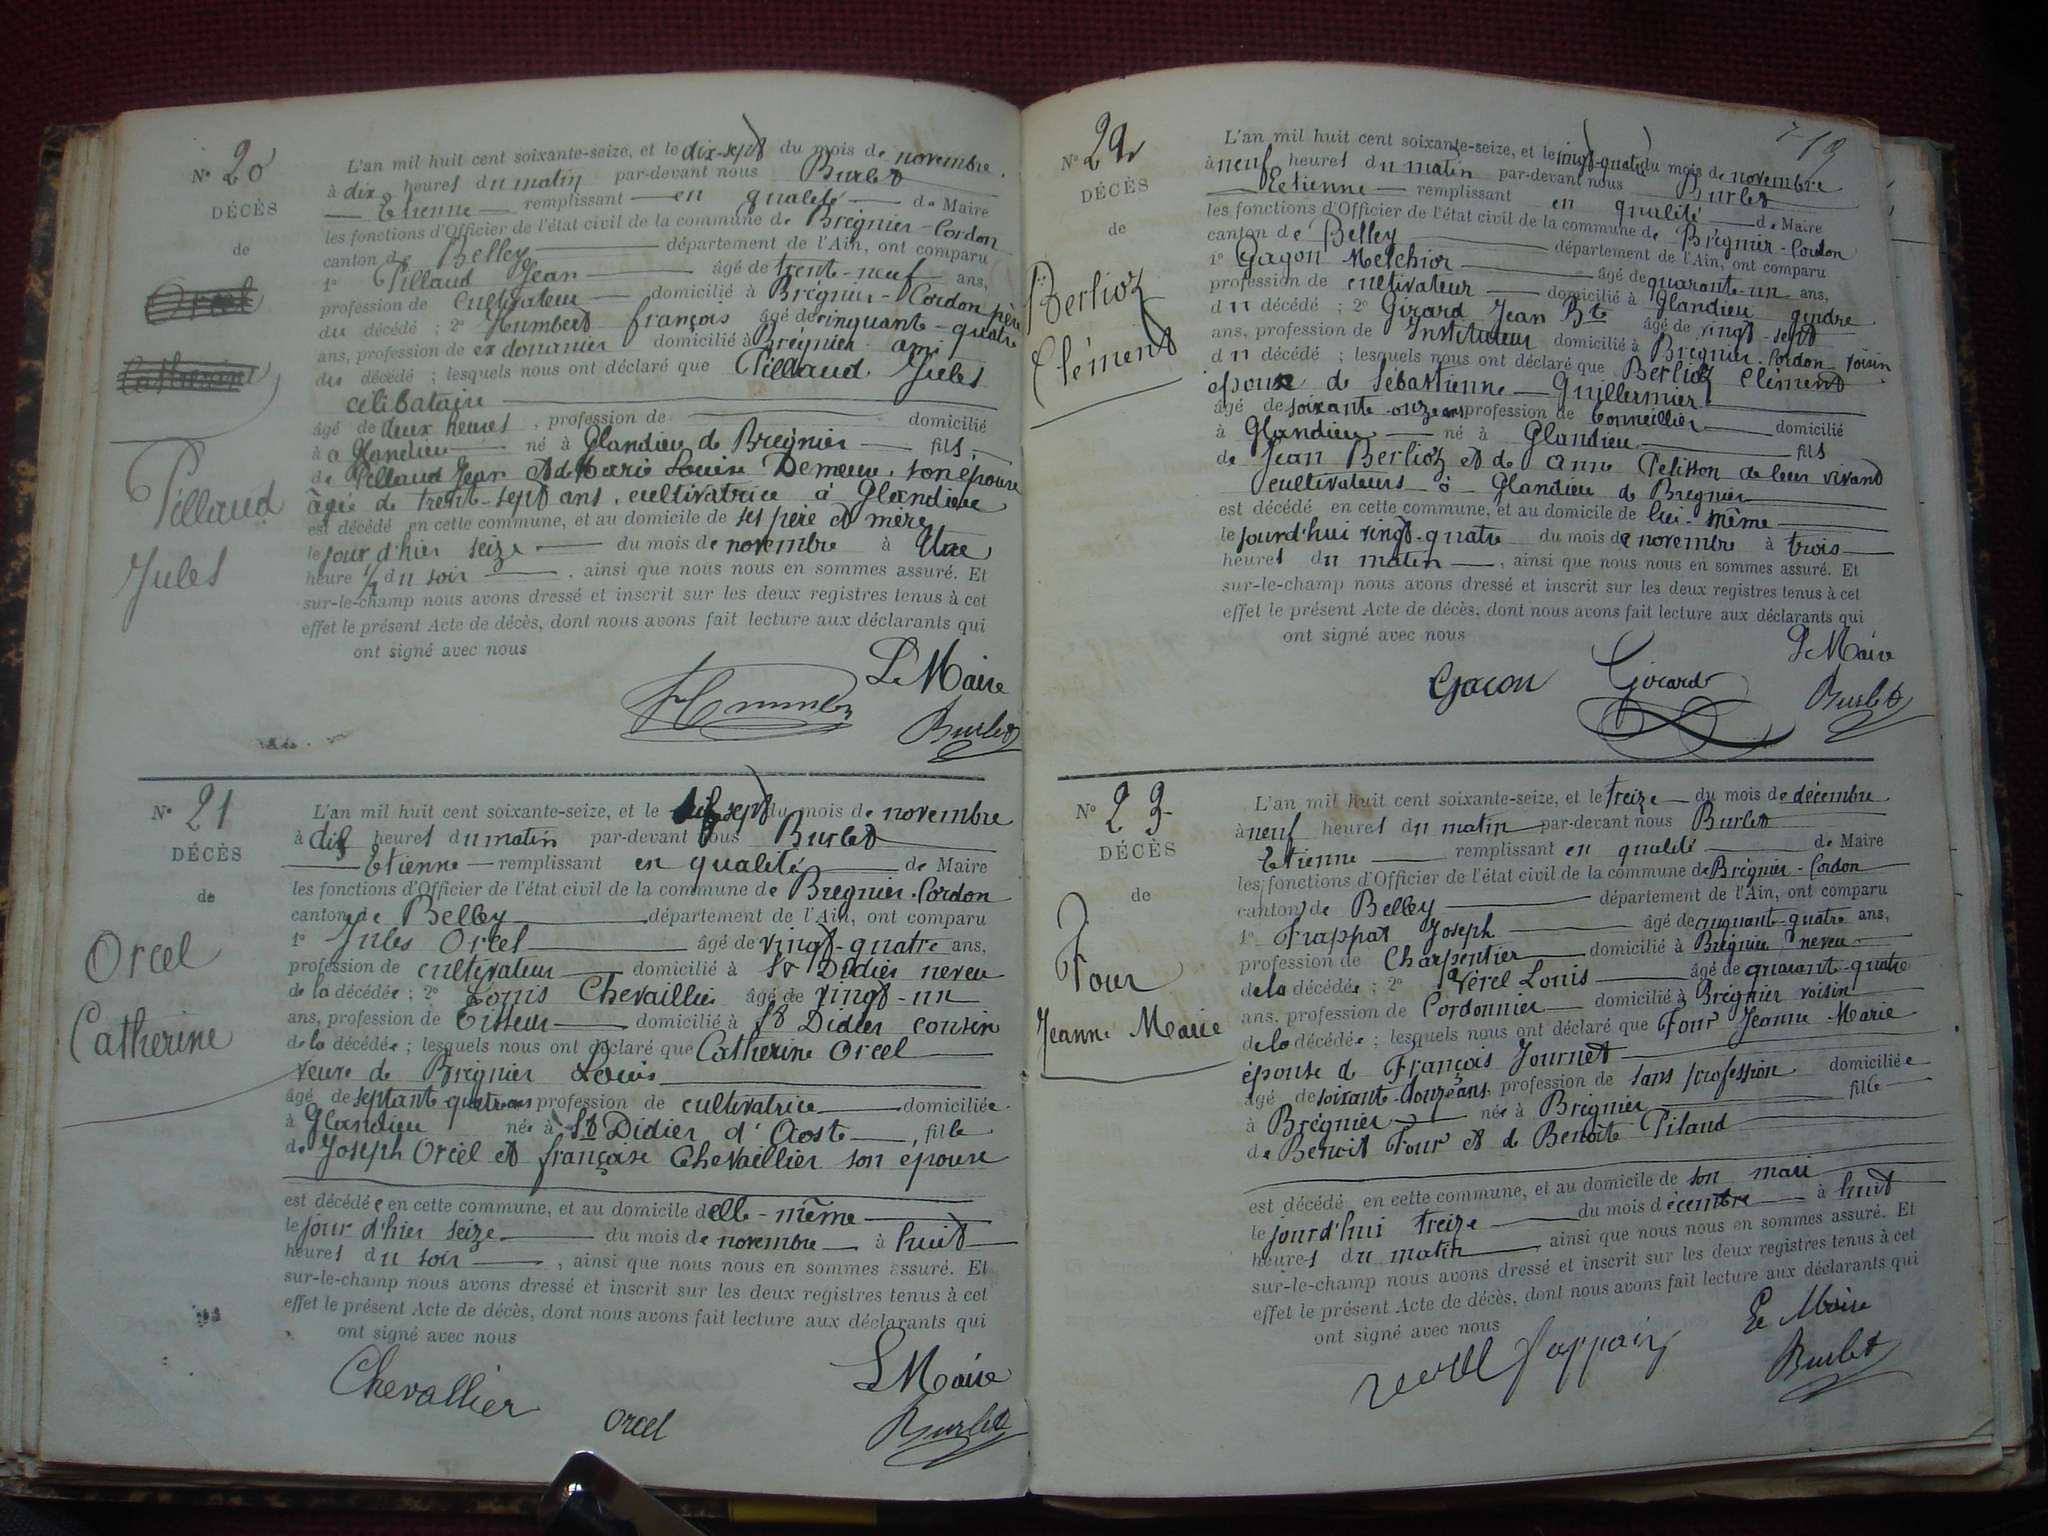 N° 20
DÉCÈS
de
Orcel
Catherine
Pillaud
Jules
L'an mil huit cent soixante-seize, et le dix-sept du mois de novembre
à dix heures du matin par-devant nous Burlet
Etienne remplissant en qualité de Maire
les fonctions d'Officier de l'état civil de la commune de Brégnier-Cordon
canton de Belley département de l'Ain, ont comparu
1° Pillaud Jean âgé de trente-neuf ans,
profession de cultivateur domicilié à Brégnier-Cordon père
du décédé ; 2° Humbert françois âgé de cinquante-quatre
ans, profession de ex douanier domicilié à Brégnier ami
du décédé ; lesquels nous ont déclaré que Pillaud Jules
célibataire
âgé de deux heures, profession de domicilié
à Glandieu né à Glandieu de Brégnier fils
de Pillaud Jean et de Marie Louise Demeur, son épouse
âgée de trente-sept ans, cultivatrice à Glandieu
est décédé en cette commune, et au domicile de ses père et mère
le jour d'hier seize du mois de novembre à Une
heure 1/2 du soir, ainsi que nous nous en sommes assuré. Et
sur-le-champ nous avons dressé et inscrit sur les deux registres tenus à cet
effet le présent Acte de décès, dont nous avons fait lecture aux déclarants qui
ont signé avec nous
Le Maire
Humbert
Burlet
N° 21
DÉCÈS
de
Orcel
Catherine
L'an mil huit cent soixante-seize, et le dix sept du mois de novembre
à dix heures du matin par-devant nous Burlet
Etienne remplissant en qualité de Maire
les fonctions d'Officier de l'état civil de la commune de Brégnier-Cordon
canton de Belley département de l'Ain, ont comparu
1° Jules Orcel âgé de vingt-quatre ans,
profession de cultivateur domicilié à St Didier neveu
de la décédée ; 2° Louis Chevaillier âgé de vingt-un
ans, profession de Tisseur domicilié à St Didier cousin
de la décédée ; lesquels nous ont déclaré que Catherine Orcel
veuve de Brégnier Louis
âgé de septante quatre ans profession de cultivatrice domiciliée
à Glandieu née à St Didier d'Aoste, fille
de Joseph Orcel et françoise Chevaillier son épouse
est décédée en cette commune, et au domicile d'elle-même
le jour d'hier seize du mois de novembre à huit
heures du soir, ainsi que nous nous en sommes assuré. Et
sur-le-champ nous avons dressé et inscrit sur les deux registres tenus à cet
effet le présent Acte de décès, dont nous avons fait lecture aux déclarants qui
ont signé avec nous
Le Maire
Chevallier
Orcel
Burlet
19
N° 22
DÉCÈS
de
Berlioz
Clément
L'an mil huit cent soixante-seize, et le vingt-quatre du mois de novembre
à neuf heures du matin par-devant nous Burlet
Etienne remplissant en qualité de Maire
les fonctions d'Officier de l'état civil de la commune de Brégnier-Cordon
canton de Belley département de l'Ain, ont comparu
1° Gaçon Melchior âgé de quarante-un ans,
profession de cultivateur domicilié à Glandieu gendre
du décédé ; 2° Girard Jean Bte âgé de vingt-sept
ans, profession de Instituteur domicilié à Brégnier-Cordon voisin
du décédé ; lesquels nous ont déclaré que Berlioz Clément
époux de Sébastienne Guillermier
âgé de soixante-onze ans profession de tonneillier domicilié
à Glandieu né à Glandieu fils
de Jean Berlioz et de anne Pelisson de leur vivant
cultivateurs à Glandieu de Brégnier
est décédé en cette commune, et au domicile de lui-même
le jourd'hui vingt-quatre du mois de novembre à trois
heures du matin, ainsi que nous nous en sommes assuré. Et
sur-le-champ nous avons dressé et inscrit sur les deux registres tenus à cet
effet le présent Acte de décès, dont nous avons fait lecture aux déclarants qui
ont signé avec nous
Le Maire
Gacon
Girard
Burlet
N° 23
DÉCÈS
de
Four
Jeanne Marie
L'an mil huit cent soixante-seize, et le treize du mois de décembre
à neuf heures du matin par-devant nous Burlet
Etienne remplissant en qualité de Maire
les fonctions d'Officier de l'état civil de la commune de Brégnier-Cordon
canton de Belley département de l'Ain, ont comparu
1° Frappat Joseph âgé de cinquant-quatre ans,
profession de Charpentier domicilié à Brégnier neveu
de la décédée ; 2° Vérel Louis âgé de quarant-quatre
ans, profession de Cordonnier domicilié à Brégnier voisin
de la décédée ; lesquels nous ont déclaré que Four Jeanne Marie
épouse de François Journet
âgé de soixante-douze ans, profession de sans profession domiciliée
à Brégnier née à Brégnier fille
de Benoit Four et de Benoite Pilaud
est décédé en cette commune, et au domicile de son mari
le jourd'hui treize du mois décembre à huit
heures du matin, ainsi que nous nous en sommes assuré. Et
sur-le-champ nous avons dressé et inscrit sur les deux registres tenus à cet
effet le présent Acte de décès, dont nous avons fait lecture aux déclarants qui
ont signé avec nous
Le Maire
Burlet